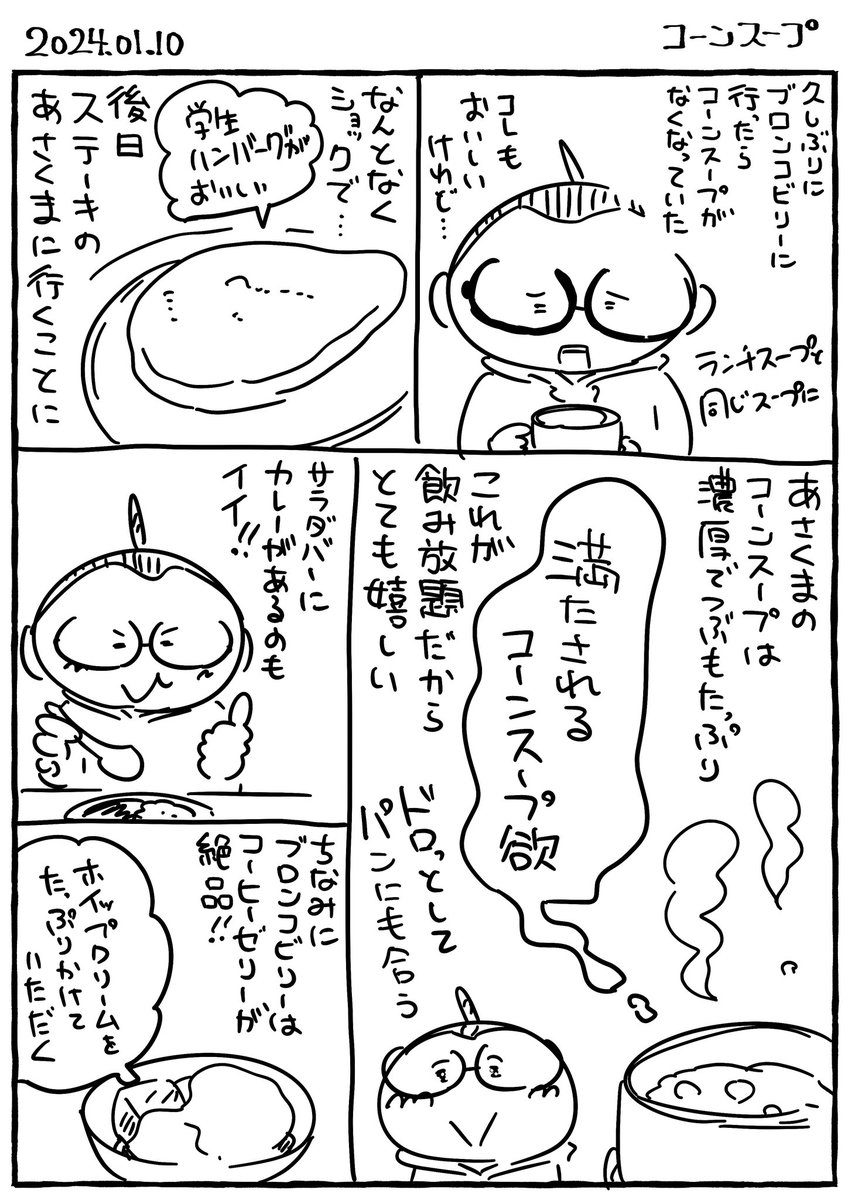 2024.01.10
コーンスープ
久しぶりに
ブロンコビリーに
行ったら
コーンスープが
なくなっていた
コレも
おいしい
けれど…
ランチスープと
同じスープに
なんとなく
ショックで…
学生
ハンバーグが
おいしい
後日
ステーキの
あさくまに行くことに
あさくまの
コーンスープは
濃厚でつぶもたっぷり
満たされる
コーンスープ欲
これが
飲み放題だから
とても嬉しい
ドロっとして
パンにも合う
サラダバーに
カレーがあるのも
イイ!!
ちなみに
ブロンコビリーは
コーヒーゼリーが
絶品!!
ホイップクリームを
たっぷりかけて
いただく